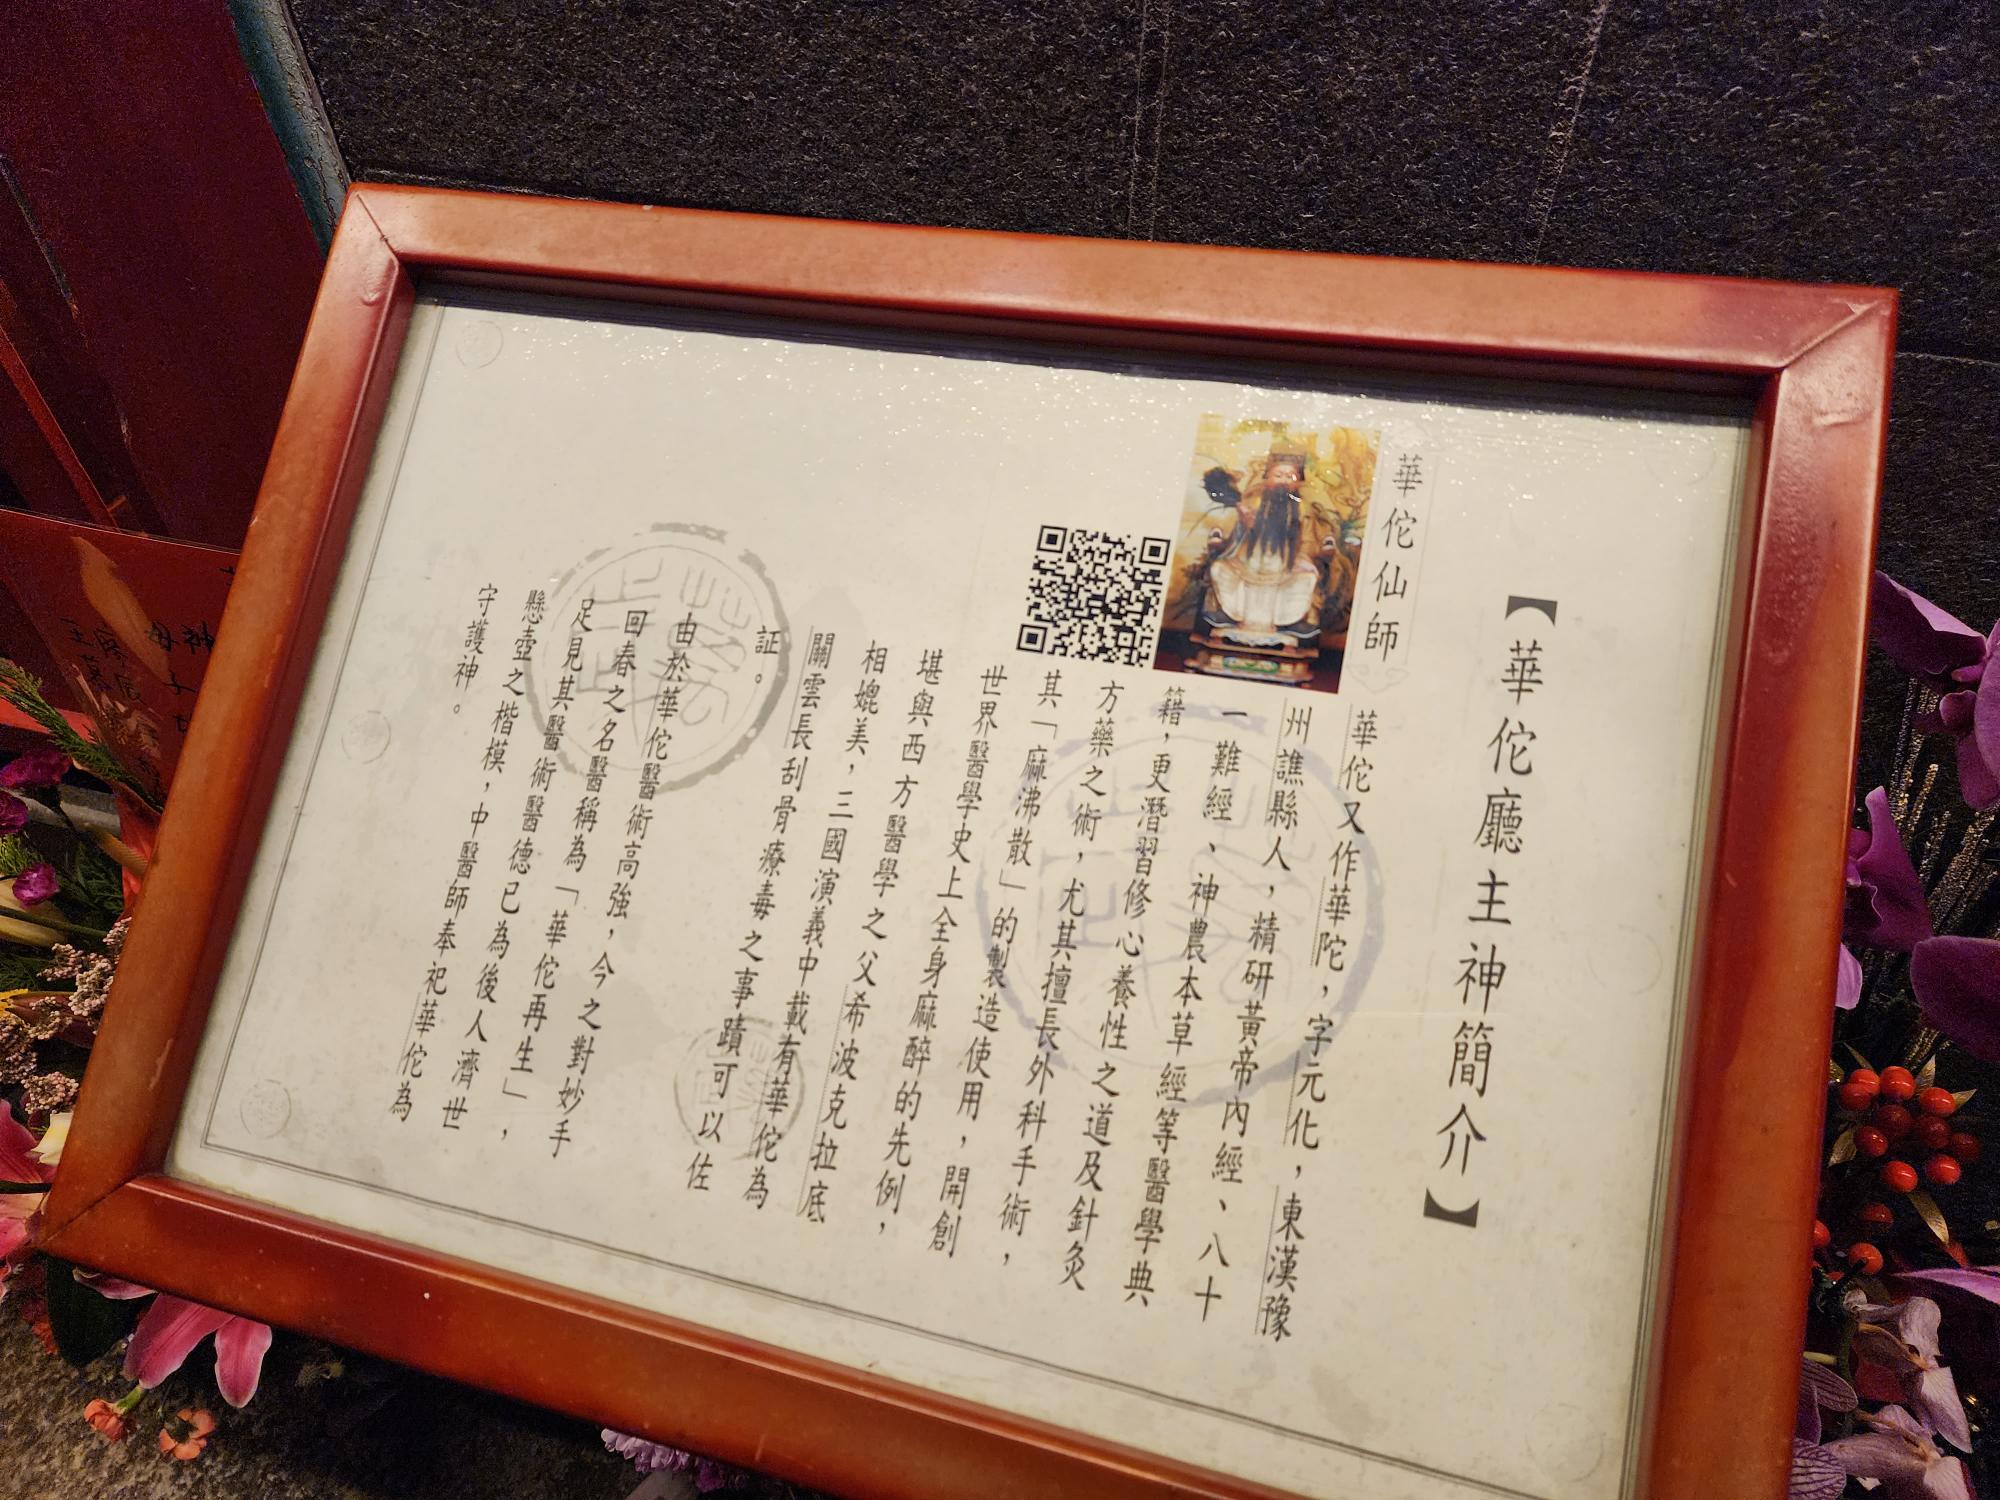 【華佗廳主神簡介】
華佗仙師
華佗又作華陀，字元化，東漢豫
州譙縣人，精研黃帝內經、八十
一難經、神農本草經等醫學典
籍，更潛習修心養性之道及針灸
方藥之術，尤其擅長外科手術，
其「麻沸散」的製造使用，開創
世界醫學史上全身麻醉的先例，
堪與西方醫學之父希波克拉底
相媲美，三國演義中載有華佗為
關雲長刮骨療毒之事蹟可以佐
証。
由於華佗醫術高強，今之對妙手
回春之名醫稱為「華佗再生」，
足見其醫術醫德已為後人濟世
懸壺之楷模，中醫師奉祀華佗為
守護神。